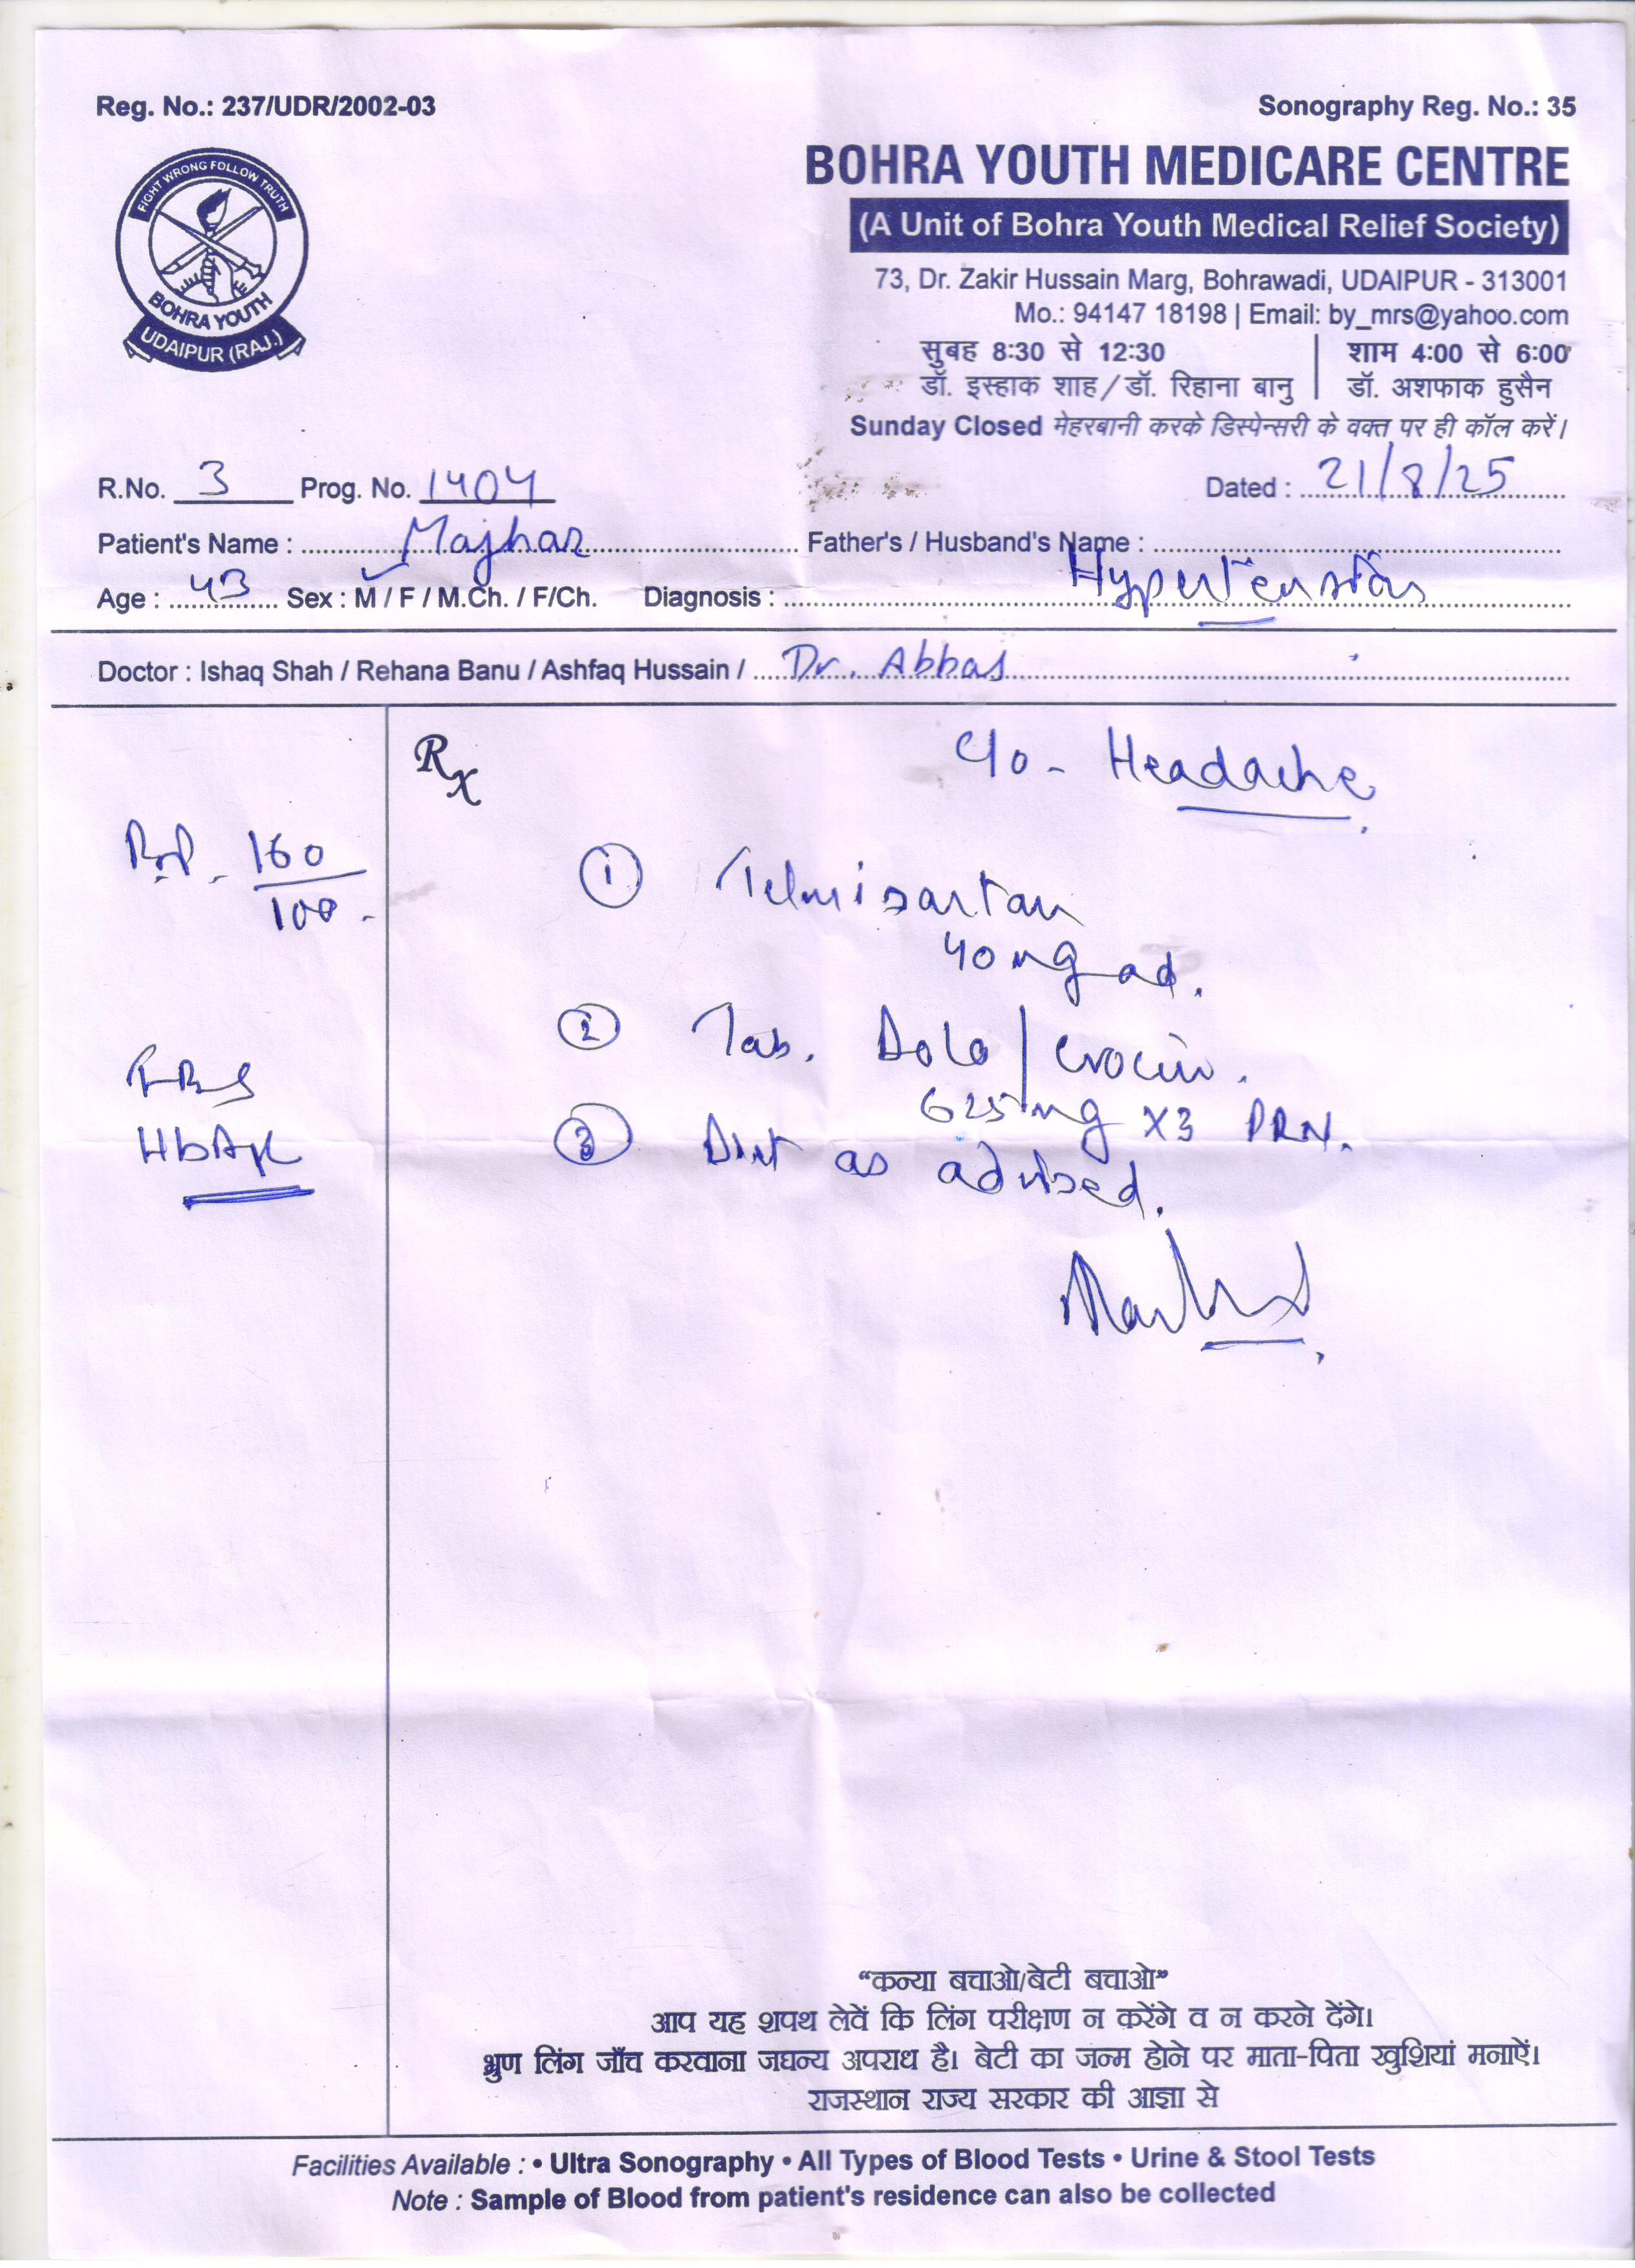 Reg. No.: 237/UDR/2002-03
Sonography Reg. No.: 35
FIGHT WRONG FOLLOW TRUTH
BOHRA YOUTH
UDAIPUR (RAJ.)
BOHRA YOUTH MEDICARE CENTRE
(A Unit of Bohra Youth Medical Relief Society)
73, Dr. Zakir Hussain Marg, Bohrawadi, UDAIPUR - 313001
Mo.: 94147 18198 | Email: by_mrs@yahoo.com
सुबह 8:30 से 12:30 | शाम 4:00 से 6:00
डॉ. इस्हाक शाह/डॉ. रिहाना बानु | डॉ. अशफाक हुसैन
Sunday Closed मेहरबानी करके डिस्पेन्सरी के वक्त पर ही कॉल करें।
R.No. 3 Prog. No. 1404 Dated : 21/8/25
Patient's Name : Majhar Father's / Husband's Name :
Age : 43 Sex : M / F / M.Ch. / F/Ch. Diagnosis : Hypertension
Doctor : Ishaq Shah / Rehana Banu / Ashfaq Hussain / Dr. Abbas
Rx
C/o - Headache
B.P. - 160/100
① Telmisartan
40 mg od.
② Tab. Dolo/crocin.
625 mg x3 PRN.
FBS
HbA1c
③ Diet as advised.
“कन्या बचाओ/बेटी बचाओ”
आप यह शपथ लेवें कि लिंग परीक्षण न करेंगे व न करने देंगे।
भ्रुण लिंग जाँच करवाना जघन्य अपराध है। बेटी का जन्म होने पर माता-पिता खुशियां मनाऐं।
राजस्थान राज्य सरकार की आज्ञा से
Facilities Available : • Ultra Sonography • All Types of Blood Tests • Urine & Stool Tests
Note : Sample of Blood from patient's residence can also be collected